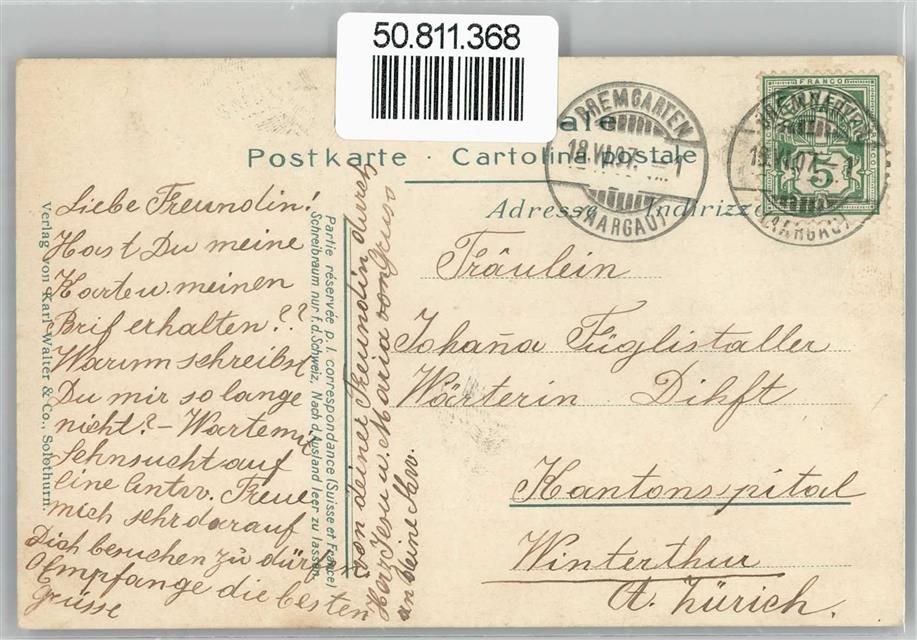 50.811.368
Postkarte · Cartolina postale
BREMGARTEN
18.VI.07. 1
(AARGAU)
BREMGARTEN
18.VI.07. 1
(AARGAU)
FRANCO
5
Adresse Indirizzo
Liebe Freundin!
Hast Du meine
Karte u. meinen
Brif erhalten??
Warum schreibst
Du mir so lange
nicht? – Warte mit
Sehnsucht auf
eine Antw. Freue
mich sehr darauf
Dich besuchen zu dürfen
Empfange die besten
Grüsse
von deiner Freundin durch
Herz Jesu u. Maria
Fräulein
Johanna Füglistaller
Wärterin Dihft
Kantonspital
Winterthur
Kt. Zürich.
Partie réservée p. l. correspondance (Suisse et France)
Schreibraum nur f. d. Schweiz, Nach d. Ausland leer zu lassen
Verlag von Karl Walter & Co., Solothurn.